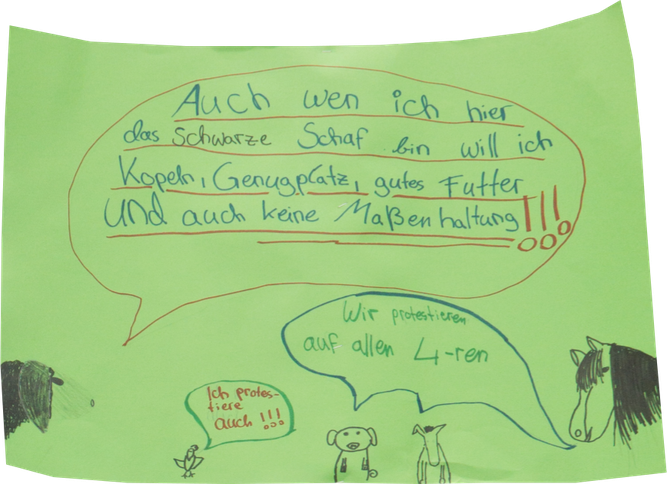 Auch wen ich hier
das schwarze Schaf bin will ich
Kopeln, Genugplatz, gutes Futter
und auch keine Maßenhaltung!!!
Wir protestieren
auf allen 4-ren
Ich protes-
tiere
auch !!!